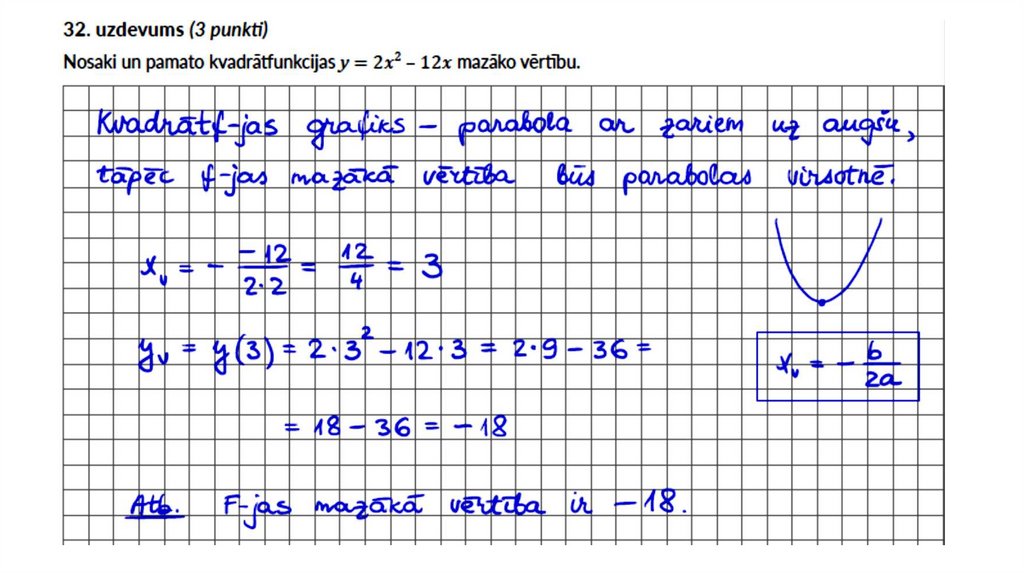 32. uzdevums (3 punkti)
Nosaki un pamato kvadrātfunkcijas y = 2x² – 12x mazāko vērtību.
Kvadrātf-jas grafiks – parabola ar zariem uz augšu,
tāpēc f-jas mazākā vērtība būs parabolas virsotnē.
xᵥ = - -12/2·2 = 12/4 = 3
yᵥ = y(3) = 2·3² - 12·3 = 2·9 - 36 =
xᵥ = - b/2a
= 18 - 36 = -18
Atb. F-jas mazākā vērtība ir -18.